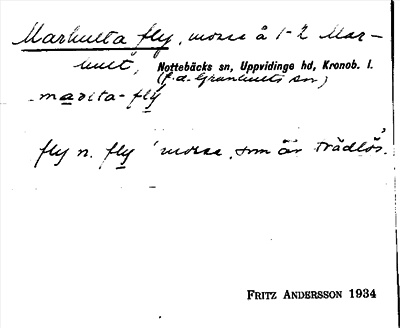 Markulta fly, mosse å 1-2 Mar-
hult, Nottebäcks sn, Uppvidinge hd, Kronob. l.
(f.d. Granhults sn)
maṣita-fly
fly n. fly 'mosse, som är trädlös'.
FRITZ ANDERSSON 1934